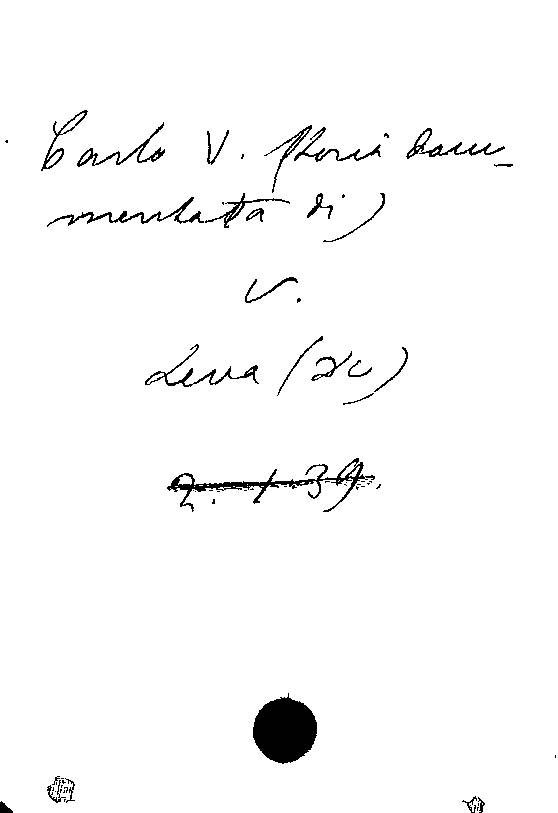 Carlo V. (Storia docu-
mentata di)
V.
Leva (de)
2. 1 39.